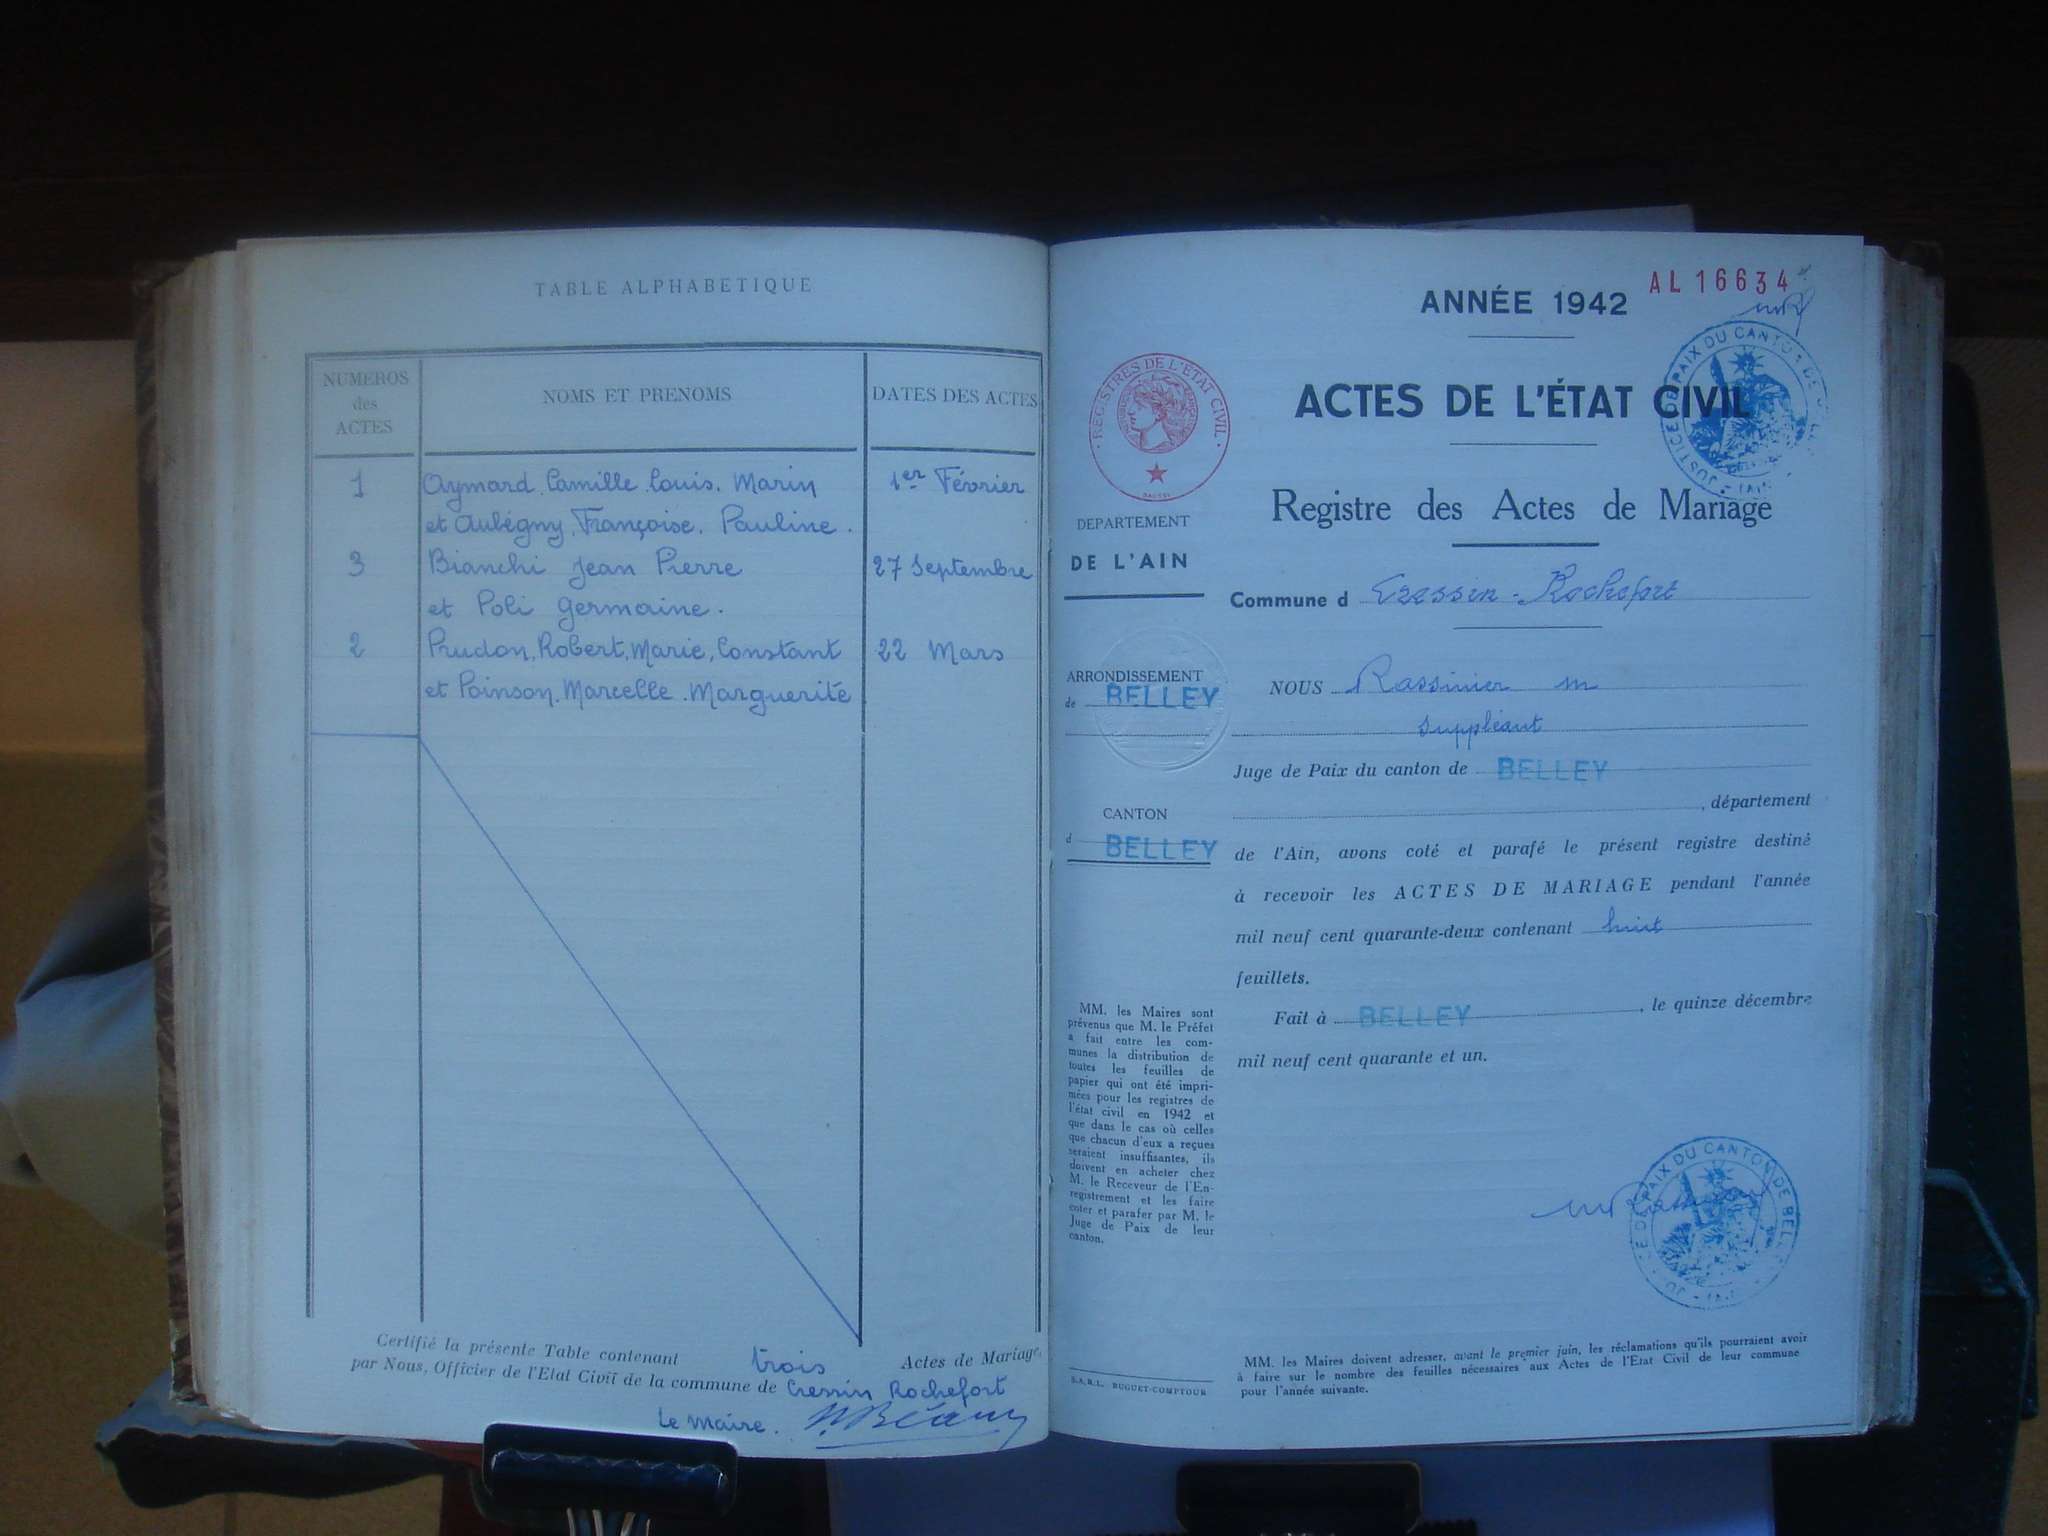 TABLE ALPHABETIQUE
NUMEROS
des
ACTES
NOMS ET PRENOMS
DATES DES ACTES
1 Aymard, Camille, Louis, Marin 1er Février
et Aubégny, Françoise, Pauline.
3 Bianchi Jean Pierre 27 Septembre
et Poli Germaine.
2 Prudon, Robert, Marie, Constant 22 Mars
et Poinson, Marcelle, Marguerite
Certifié la présente Table contenant trois Actes de Mariage
par Nous, Officier de l'Etat Civil de la commune de Cressin Rochefort
Le Maire.
AL 16634
ANNÉE 1942
ACTES DE L'ÉTAT CIVIL
JUSTICE DE PAIX DU CANTON DE
REGISTRES DE L'ÉTAT CIVIL
Registre des Actes de Mariage
DEPARTEMENT
DE L'AIN
Commune d Cressin-Rochefort
ARRONDISSEMENT
de BELLEY
CANTON
d BELLEY
NOUS Rassinier M
suppléant
Juge de Paix du canton de BELLEY
, département
de l'Ain, avons coté et parafé le présent registre destiné
à recevoir les ACTES DE MARIAGE pendant l'année
mil neuf cent quarante-deux contenant huit
feuillets.
Fait à BELLEY, le quinze décembre
mil neuf cent quarante et un.
MM. les Maires sont
prévenus que M. le Préfet
a fait entre les com-
munes la distribution de
toutes les feuilles de
papier qui ont été impri-
mées pour les registres de
l'état civil en 1942 et
que dans le cas où celles
que chacun d'eux a reçues
seraient insuffisantes, ils
doivent en acheter chez
M. le Receveur de l'En-
registrement et les faire
coter et parafer par M. le
Juge de Paix de leur
canton.
DE PAIX DU CANTON DE BELLEY
S.A.R.L. BUGUET-COMPTOUR
MM. les Maires doivent adresser, avant le premier juin, les réclamations qu'ils pourraient avoir
à faire sur le nombre des feuilles nécessaires aux Actes de l'Etat Civil de leur commune
pour l'année suivante.